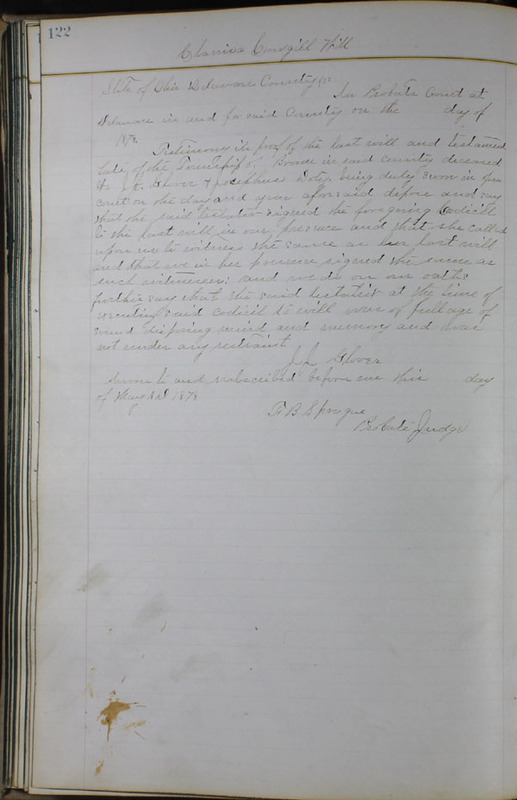 122
Clarissa Cowgill Will
State of Ohio Delaware County ss
In Probate Court at
Delaware in and for said County on the day of
187
Testimony in proof of the last will and testament
late of the Township of Brown in said county deceased
We J. J. Glover & Josephus Doty being duly sworn in open
court on the day and year aforesaid depose and say
that the said testator signed the foregoing Codicill
to the last will in our presence and that she called
upon us to witness the same as her last will
and that we in her presence signed the same as
such witnesses: and we do on our oaths
further say that the said testatrix at the time of
executing said codicil to will was of full age of
sound disposing mind and memory and was
not under any restraint
J. J. Glover
Sworn to and subscribed before me this day
of May AD 1878
F B Sprague
Probate Judge